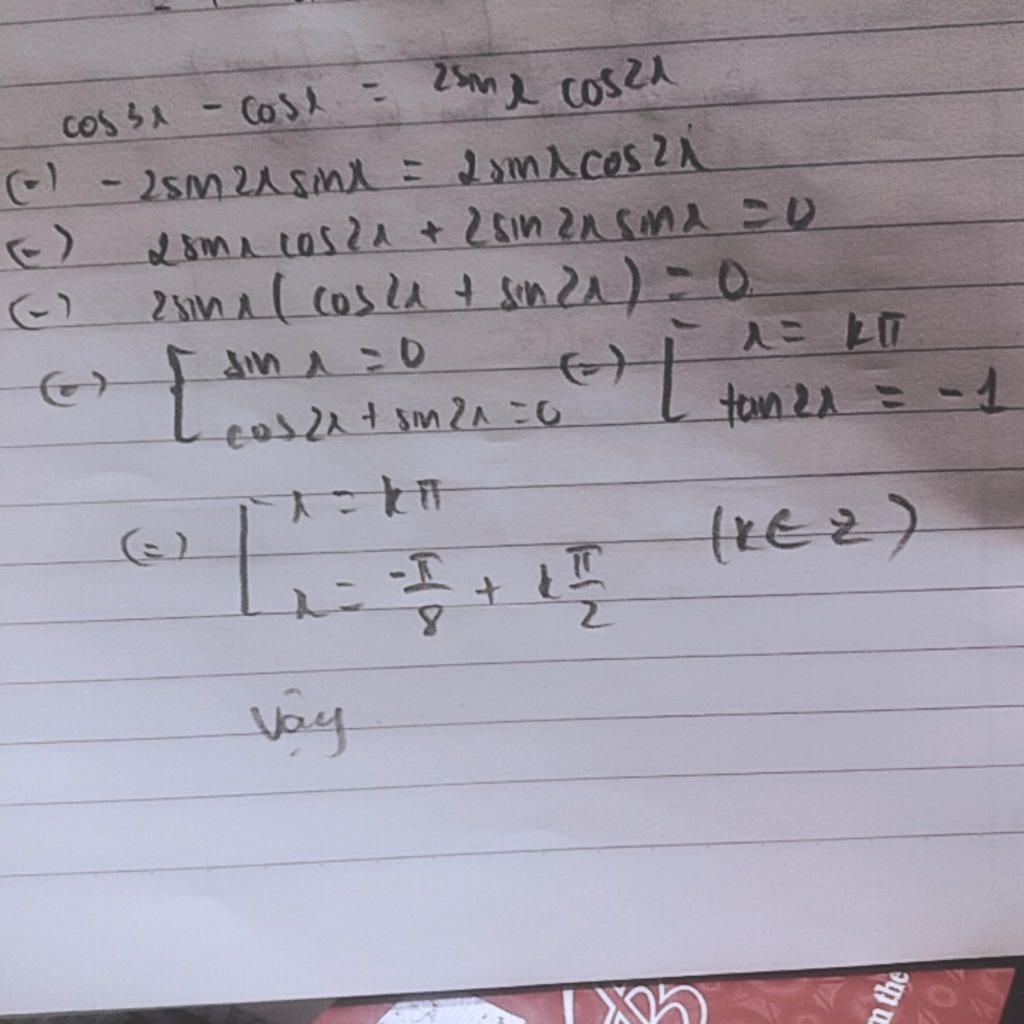 cos3x - cosx = 2sinx cos2x
(=) - 2sin2x sinx = 2sinxcos2x
(=) 2sinx cos2x + 2sin2x sinx = 0
(=) 2sinx ( cos2x + sin2x ) = 0
(=) [ sin x = 0 (=) [ x = kπ
cos2x + sin2x = 0 tan2x = -1
(=) [ x = kπ (k ∈ Z)
x = -π/8 + k π/2
Vậy
n the